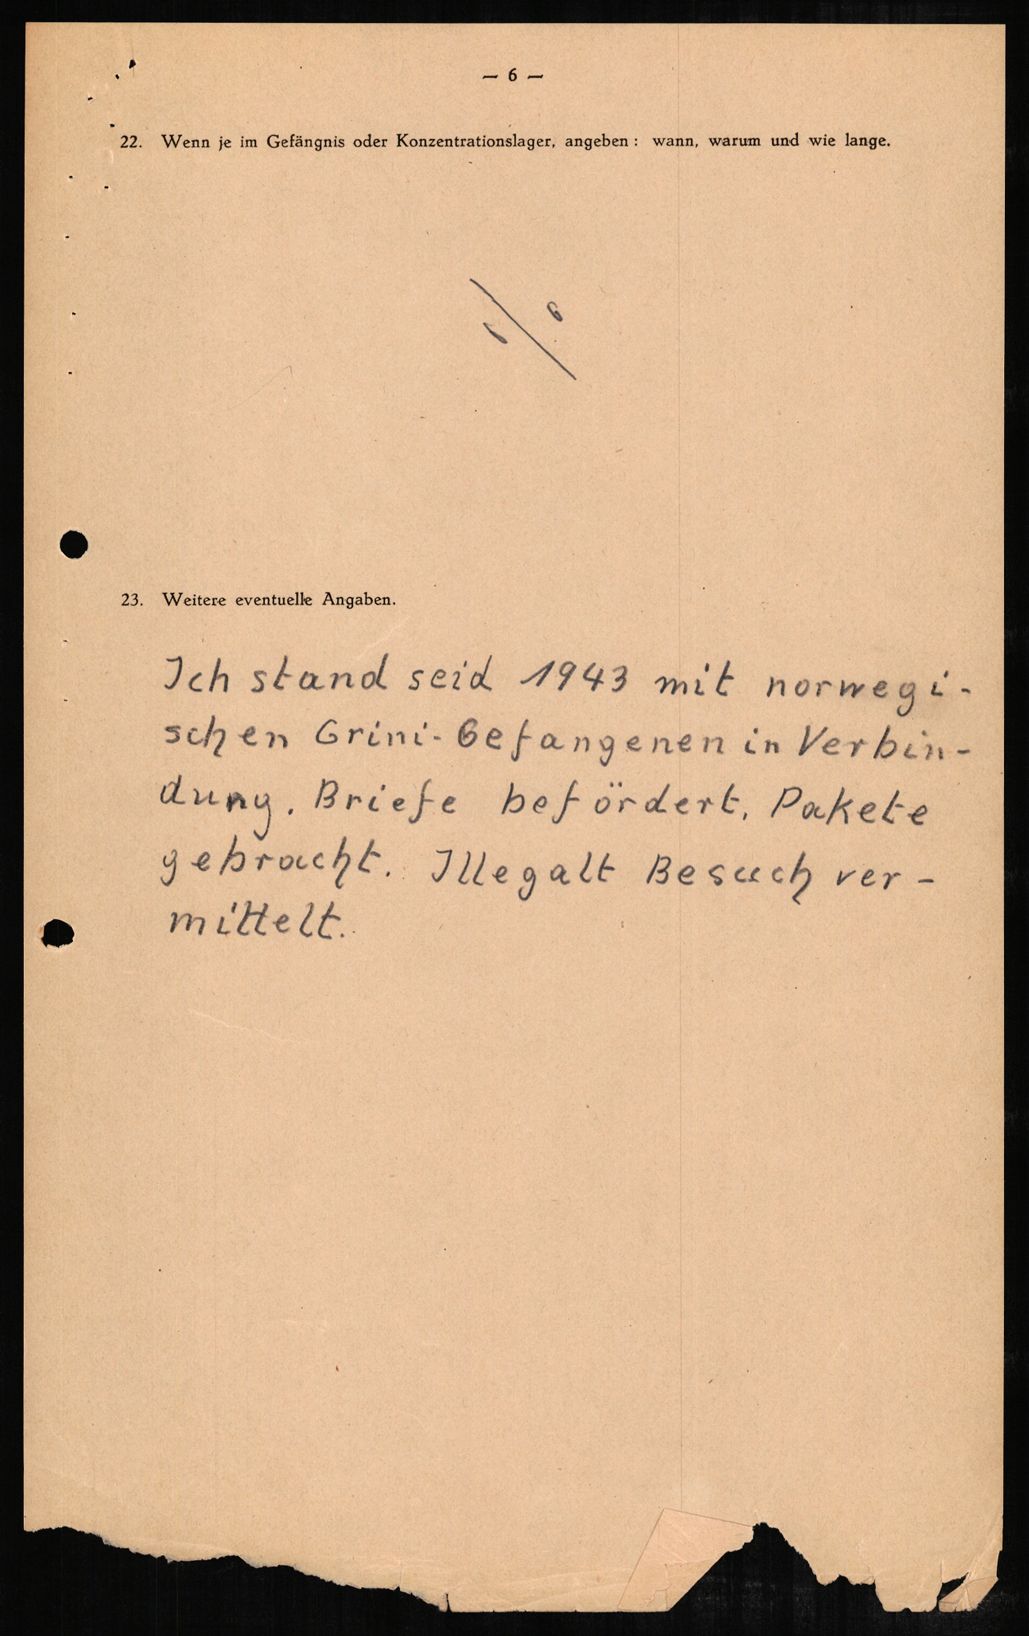 — 6 —
22. Wenn je im Gefängnis oder Konzentrationslager, angeben : wann, warum und wie lange.
23. Weitere eventuelle Angaben.
Ich stand seid 1943 mit norwegi-
schen Grini-Gefangenen in Verbin-
dung. Briefe befördert, Pakete
gebracht. Illegalt Besuch ver-
mittelt.